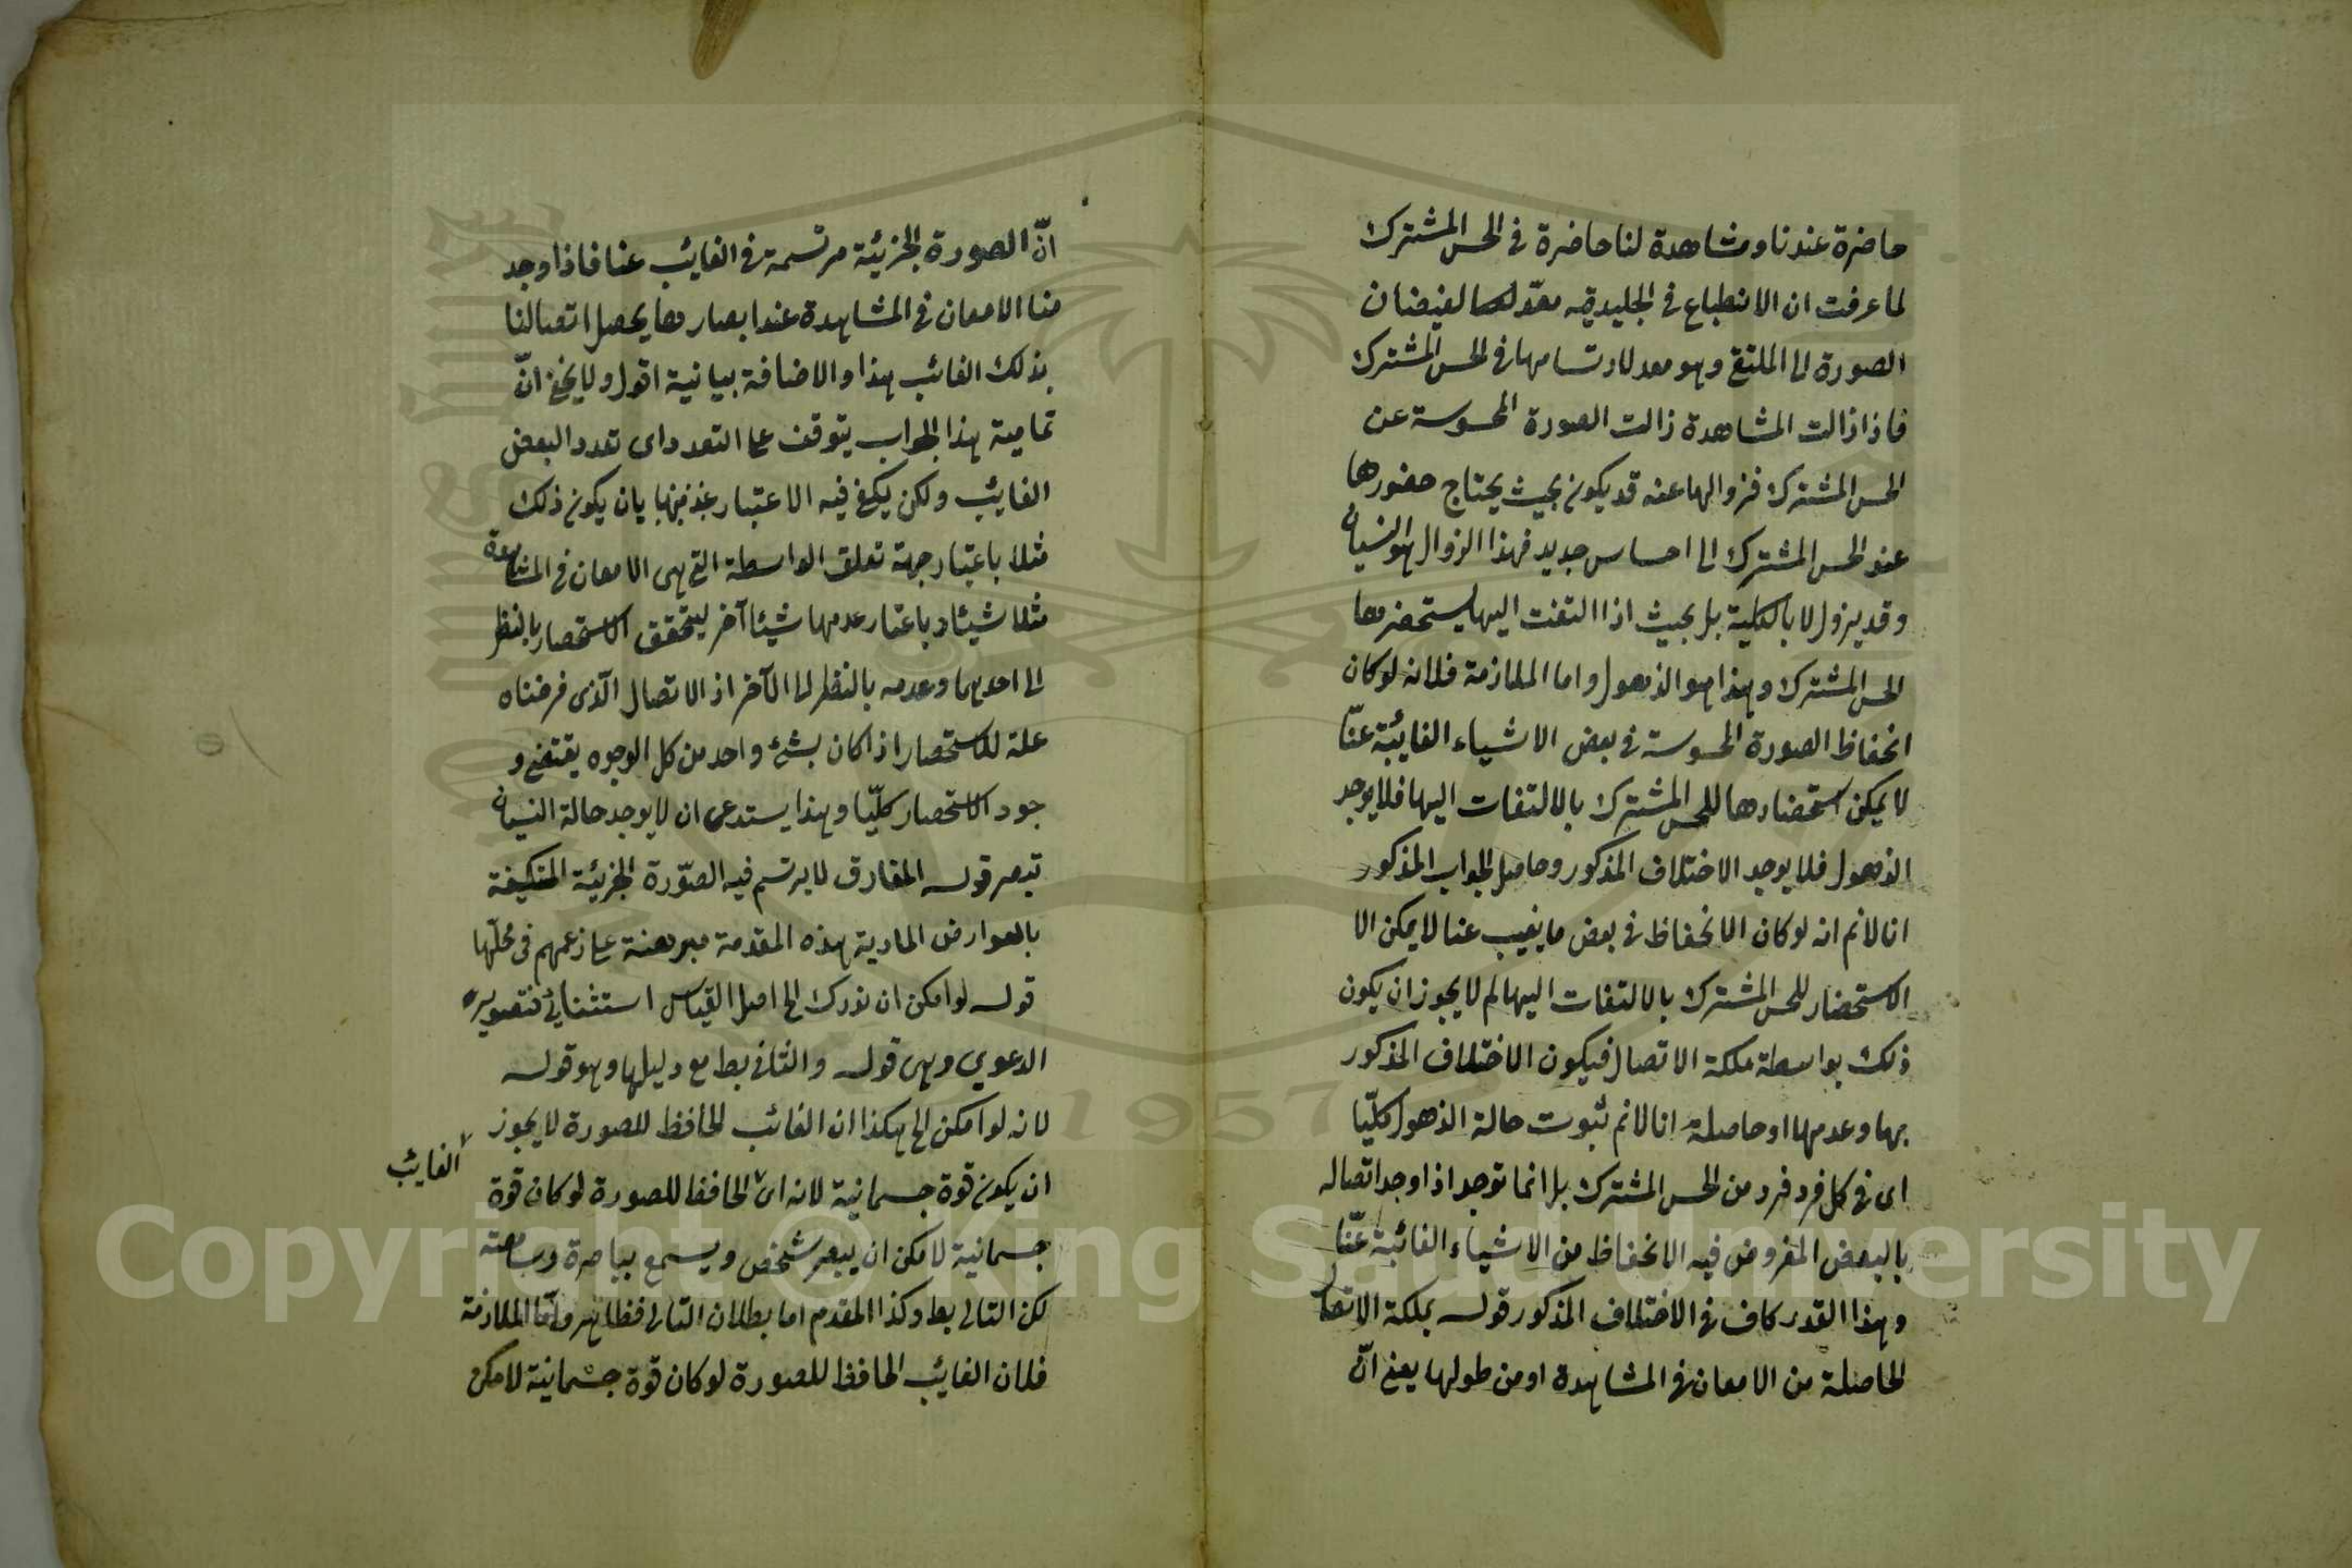 حاضرة عندنا ومشاهدة لنا حاضرة فى الحس المشترك
لما عرفت ان الانطباع فى الجليدية معدّ لها لفيضان
الصورة الى الملتقى وهو معد لارتسامها فى الحس المشترك
فاذا زالت المشاهدة زالت الصورة المحسوسة عن
الحس المشترك فزوالها عنه قد يكون بحيث يحتاج حضورها
عند الحس المشترك الى احساس جديد فهذا الزوال هو النسيان
وقد يزول لا بالكلية بل بحيث اذا التفت اليها يستحضرها
الحس المشترك وهذا هو الذهول واما الملازمة فلانه لو كان
انحفاظ الصورة المحسوسة فى بعض الاشياء الغائبة عنّا
لا يمكن استحضارها للحس المشترك بالالتفات اليها فلا يوجد
الذهول فلا يوجد الاختلاف المذكور وحاصل الجواب المذكور
انا لانم انه لو كان الانحفاظ فى بعض ما يغيب عنا لا يمكن الا
الاستحضار للحس المشترك بالالتفات اليها لم لا يجوز ان يكون
ذلك بواسطة ملكة الاتصال فيكون الاختلاف المذكور
بها وعدمها او حاصله انا لانم ثبوت حالة الذهول كليّا
اى فى كل فرد فرد من الحس المشترك بل انما توجد اذا وجد اتصاله
بالبعض المفروض فيه الانحفاظ من الاشياء الغائبة عنّا
وهذا القدر كاف فى الاختلاف المذكور قوله بملكة الاتصال
الحاصلة من الامعان فى المشاهدة او من طولها يعنى انّ
انّ الصورة الجزئية مرتسمة فى الغايب عنا فاذا وجد
منا الامعان فى المشاهدة عند ابصارها يحصل اتصالنا
بذلك الغائب هذا والاضافة بيانية اقول ولا يخفى انّ
تمامية هذا الجواب يتوقف على التعدد اى تعدد البعض
الغايب ولكن يكفى فيه الاعتبار بان يكون ذلك
مثلا باعتبار جهة تعلق الواسطة التى هى الامعان فى المشاهدة
مثلا شيئا وباعتبار عدمها شيئا آخر ليتحقق الاستحضار بالنظر
الى احدهما وعدمه بالنظر الى الآخر اذ الاتصال الّذى فرضناه
علة للاستحضار اذا كان بشئ واحد من كل الوجوه يقتضى و
جود الاستحضار كليّا وهذا يستدعى ان لا يوجد حالة النسيان
تبصر قوله المفارق لا يرتسم فيه الصّورة الجزئية المتكيفة
بالعوارض المادية هذه المقدمة مبرهنة على زعمهم فى محلّها
قوله لو امكن ان ندرك الخ اصل القياس استثنائى فتصويره
الدعوي وهى قوله والثانى بط مع دليلها وهو قوله
لانه لو امكن الخ هكذا ان الغائب الحافظ للصورة لا يجوز
ان يكون قوة جسمانية لانه اى الحافظ للصورة لو كان قوة
الغايب
جسمانية لامكن ان يبصر شخص ويسمع بباصرة وسامعة
لكن التالى بط وكذا المقدم اما بطلان التالى فظاهر وامّا الملازمة
فلان الغايب الحافظ للصورة لو كان قوة جسمانية لامكن
1957
Copyright © King Saud University